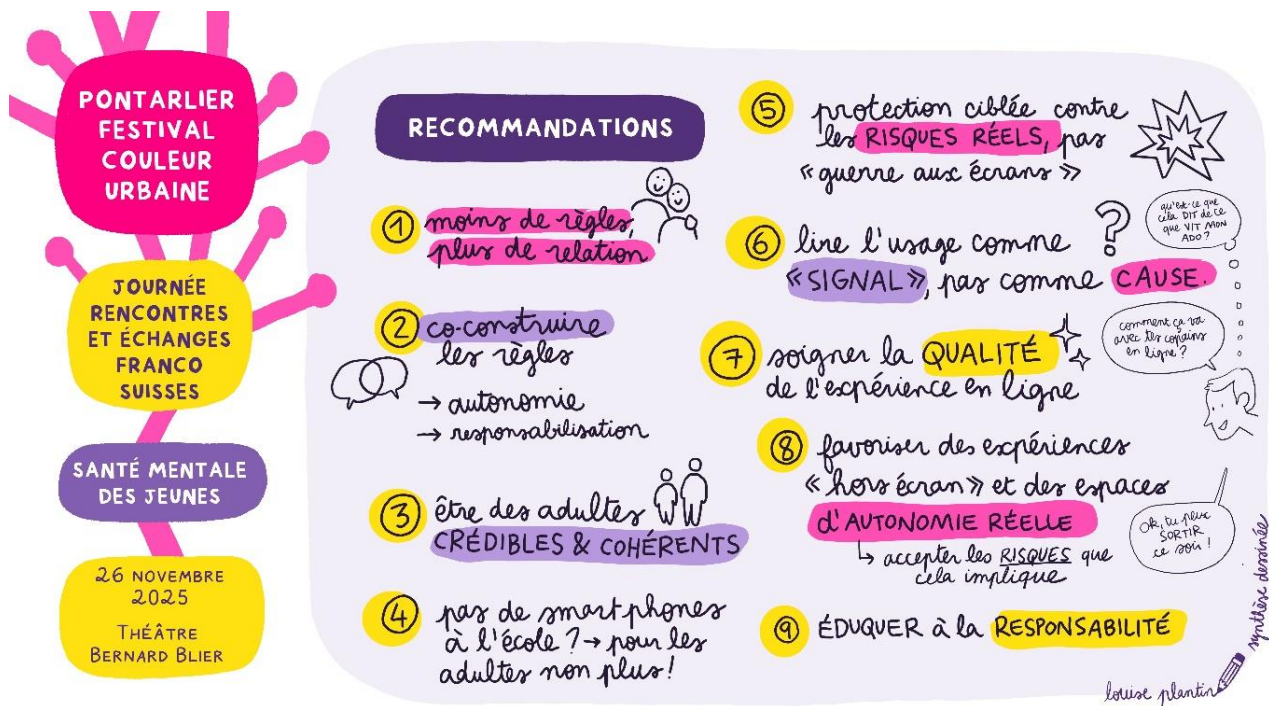 PONTARLIER
FESTIVAL
COULEUR
URBAINE
JOURNÉE
RENCONTRES
ET ÉCHANGES
FRANCO
SUISSES
SANTÉ MENTALE
DES JEUNES
26 NOVEMBRE
2025
THÉÂTRE
BERNARD BLIER
RECOMMANDATIONS
1 moins de règles,
plus de relation
2 co-construire
les règles
→ autonomie
→ responsabilisation
3 être des adultes
CRÉDIBLES & COHÉRENTS
4 pas de smartphones
à l'école ? → pour les
adultes non plus !
5 protection ciblée contre
les RISQUES RÉELS, pas
« guerre aux écrans »
6 lire l'usage comme
« SIGNAL », pas comme CAUSE.
?
qu'est-ce que
cela DIT de ce
que VIT MON
ADO ?
7 soigner la QUALITÉ
de l'expérience en ligne
comment ça va
avec tes copains
en ligne ?
8 favoriser des expériences
« hors écran » et des espaces
d'AUTONOMIE RÉELLE
↳ accepter les RISQUES que
cela implique
Ok, tu peux
SORTIR
ce soir !
9 ÉDUQUER à la RESPONSABILITÉ
louise plantin
synthèse dessinée